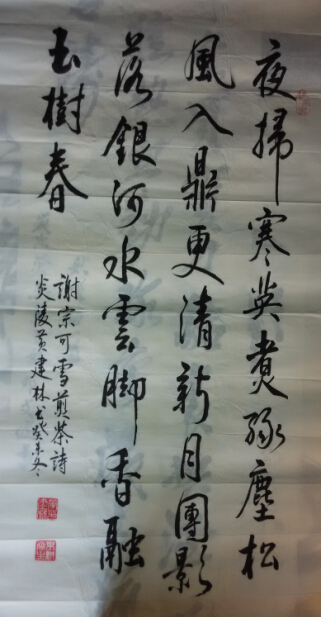 夜掃寒英煮綠塵松
風入鼎更清新月團影
落銀河水雲脚香融
玉樹春
謝宗可雪煎茶詩
炎陵黄建林书癸未冬